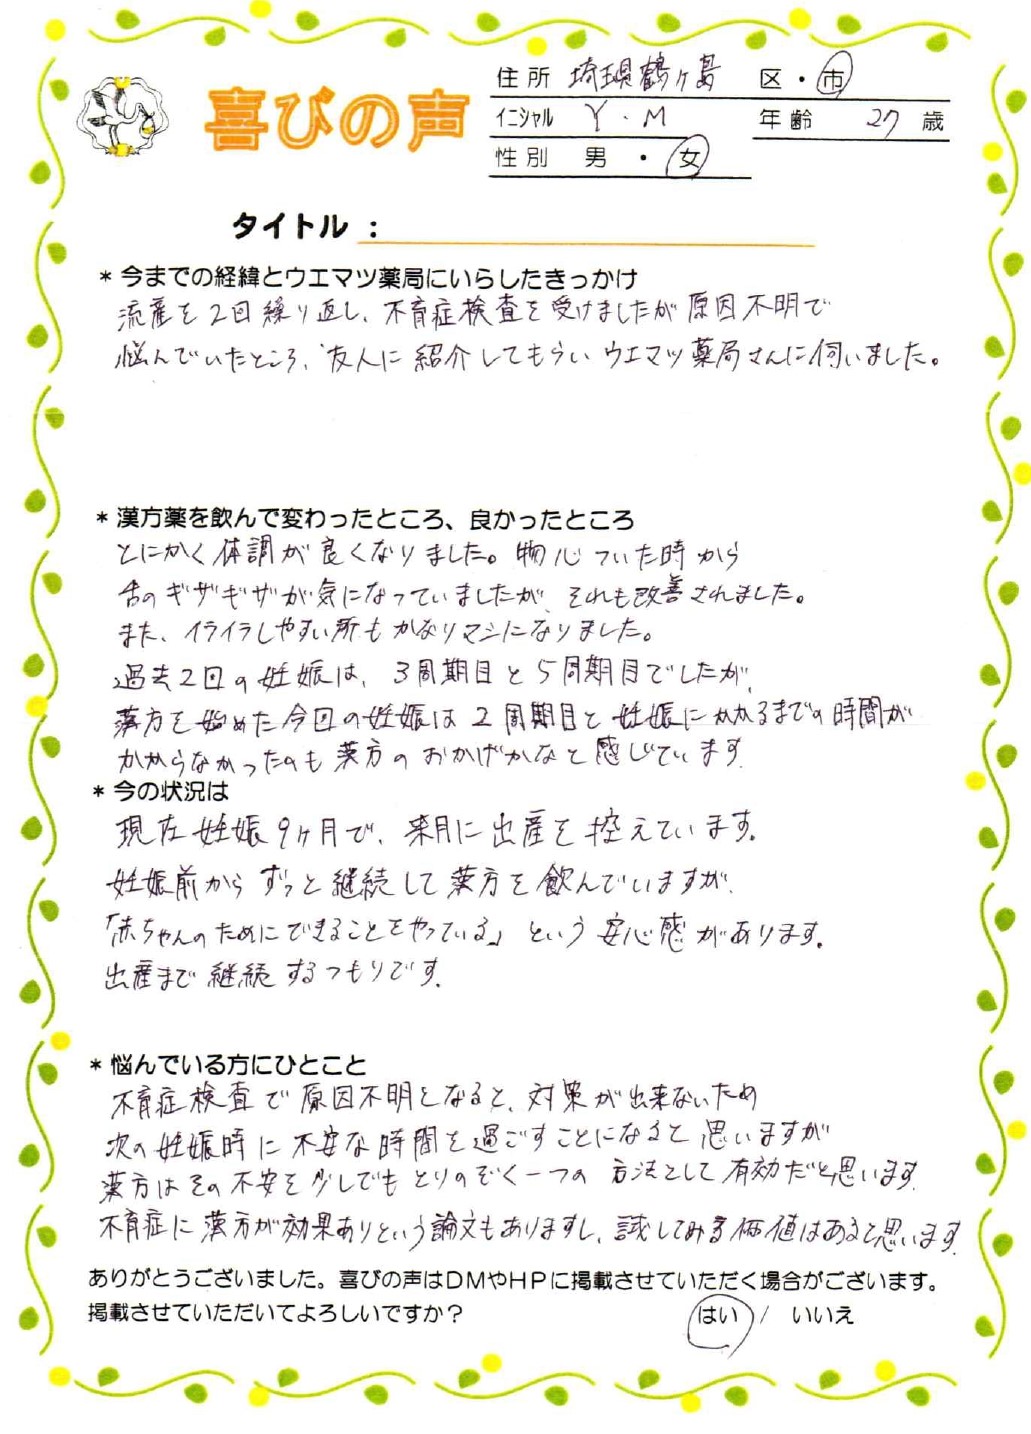 喜びの声
住所 埼玉県鶴ヶ島 区・市
イニシャル Y.M 年齢 27 歳
性別 男・女
タイトル：
＊今までの経緯とウエマツ薬局にいらしたきっかけ
流産を2回繰り返し、不育症検査を受けましたが原因不明で
悩んでいたところ、友人に紹介してもらいウエマツ薬局さんに伺いました。
＊漢方薬を飲んで変わったところ、良かったところ
とにかく体調が良くなりました。物心ついた時から
舌のギザギザが気になっていましたが、それも改善されました。
また、イライラしやすい所もかなりマシになりました。
過去2回の妊娠は、3周期目と5周期目でしたが、
漢方を始めた今回の妊娠は2周期目と妊娠にかかるまでの時間が
かからなかったのも漢方のおかげかなと感じています。
＊今の状況は
現在妊娠9ヶ月で、来月に出産を控えています。
妊娠前からずっと継続して漢方を飲んでいますが、
「赤ちゃんのためにできることをやっている」という安心感があります。
出産まで継続するつもりです。
＊悩んでいる方にひとこと
不育症検査で原因不明となると、対策が出来ないため
次の妊娠時に不安な時間を過ごすことになると思いますが
漢方はその不安を少しでもとりのぞく一つの方法として有効だと思います。
不育症に漢方が効果ありという論文もありますし、試してみる価値はあると思います。
ありがとうございました。喜びの声はDMやHPに掲載させていただく場合がございます。
掲載させていただいてよろしいですか？ はい / いいえ